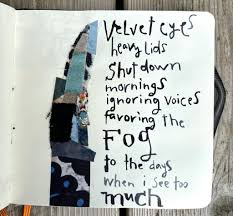 Velvet eyes
heavy lids
Shut down
mornings
ignoring voices
favoring the
Fog
to the days
when i see too
much